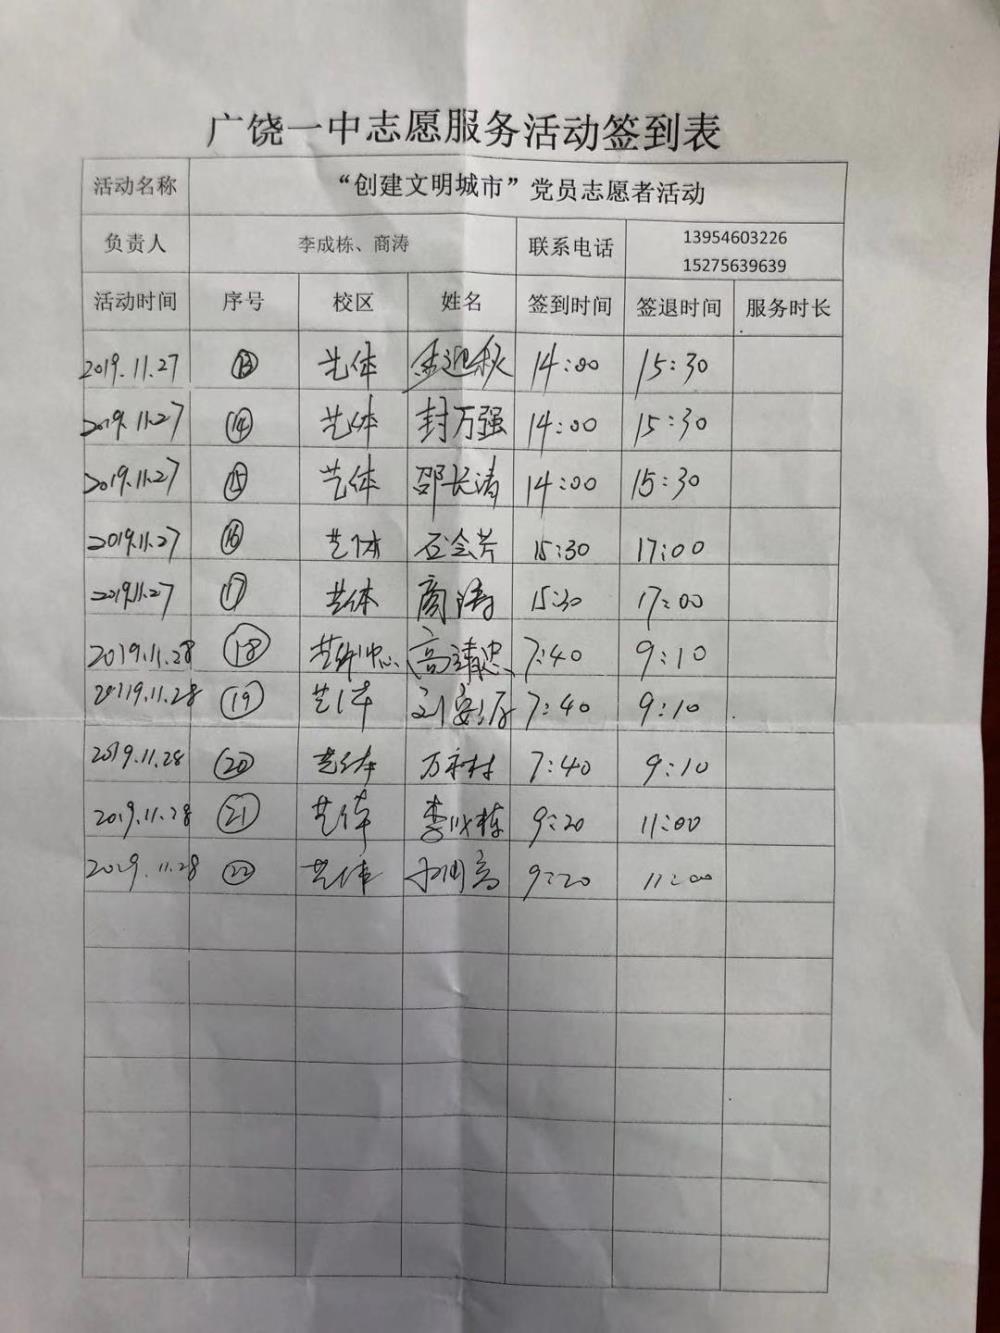 广饶一中志愿服务活动签到表
活动名称 “创建文明城市”党员志愿者活动
负责人 李成栋、商涛 联系电话 13954603226
15275639639
活动时间 序号 校区 姓名 签到时间 签退时间 服务时长
2019.11.27 ⑬ 艺体 迎秋 14:00 15:30
2019.11.27 ⑭ 艺体 封万强 14:00 15:30
2019.11.27 ⑮ 艺体 邵长涛 14:00 15:30
2019.11.27 ⑯ 艺体 石会芳 15:30 17:00
2019.11.27 ⑰ 艺体 商涛 15:30 17:00
2019.11.28 ⑱ 艺体中心 高靖忠 7:40 9:10
20119.11.28 ⑲ 艺体 刘 7:40 9:10
2019.11.28 ⑳ 艺体 万 村 7:40 9:10
2019.11.28 ㉑ 艺体 李成栋 9:20 11:00
2019.11.28 ㉒ 艺体 9:20 11:00